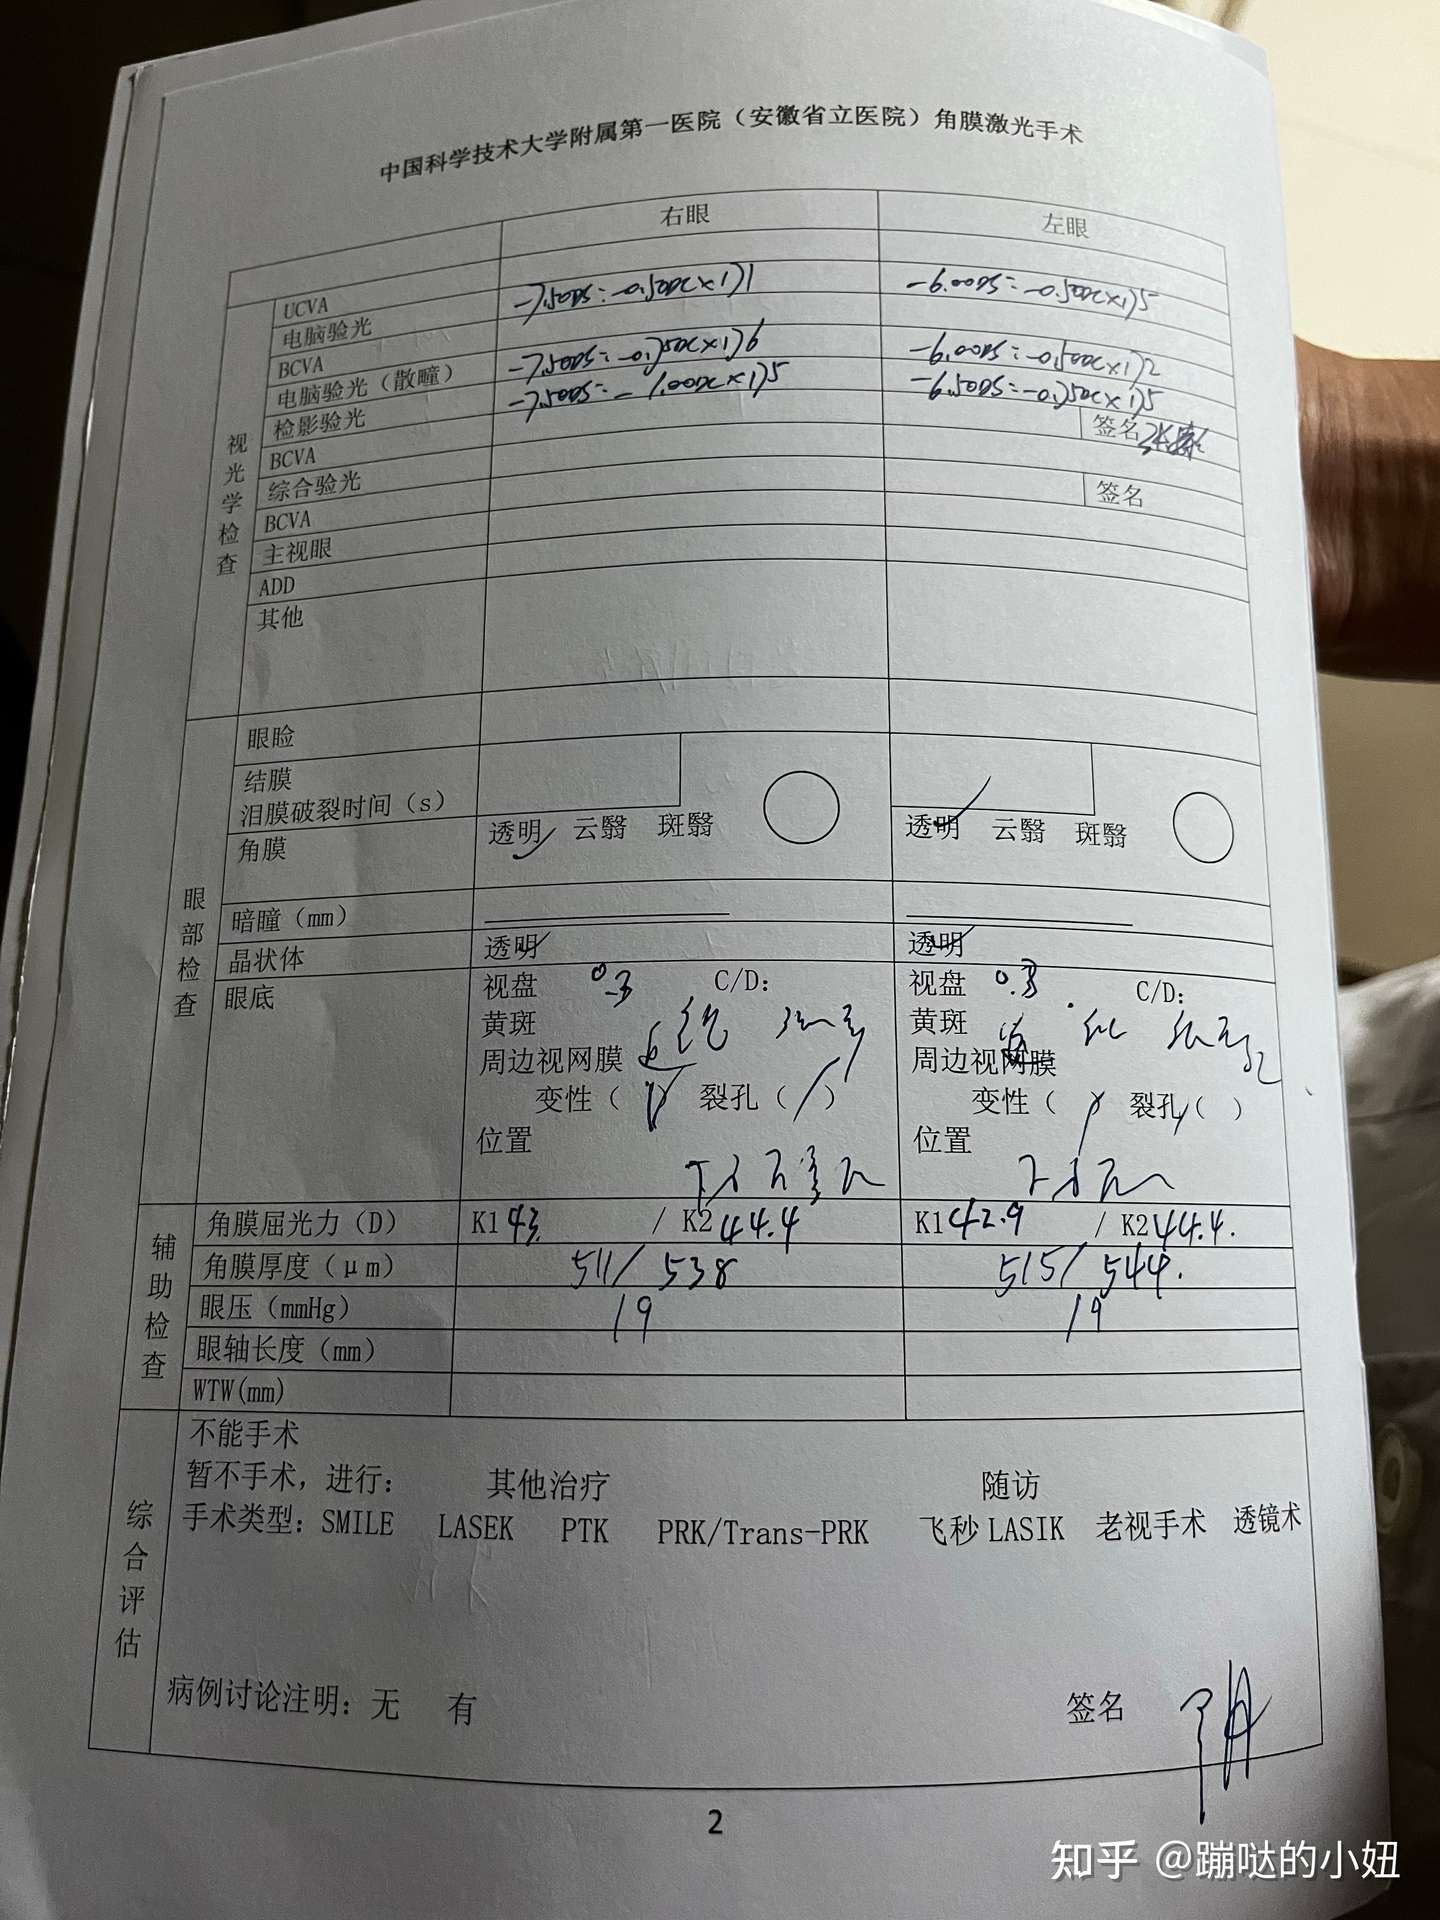 中国科学技术大学附属第一医院（安徽省立医院）角膜激光手术
右眼 左眼
视光学检查
UCVA
电脑验光 -7.50DS=-0.50DC×171 -6.00DS=-0.50DC×175
BCVA
电脑验光（散瞳） -7.50DS=-0.75DC×176 -6.00DS=-0.50DC×172
检影验光 -7.50DS=-1.00DC×175 -6.50DS=-0.75DC×175
BCVA 签名
综合验光
BCVA 签名
主视眼
ADD
其他
眼部检查
眼睑
结膜
泪膜破裂时间（s）
角膜 透明 云翳 斑翳 透明 云翳 斑翳
暗瞳（mm）
晶状体 透明 透明
眼底 视盘 0.3 C/D: 视盘 0.3 C/D:
黄斑 黄斑
周边视网膜 周边视网膜
变性（ ） 裂孔（ ） 变性（ ） 裂孔（ ）
位置 位置
辅助检查
角膜屈光力（D） K1 43. / K2 44.4 K1 42.9 / K2 44.4.
角膜厚度（μm） 511/ 538 515/ 544.
眼压（mmHg） 19 19
眼轴长度（mm）
WTW(mm)
综合评估
不能手术
暂不手术，进行： 其他治疗 随访
手术类型：SMILE LASEK PTK PRK/Trans-PRK 飞秒LASIK 老视手术 透镜术
病例讨论注明：无 有 签名
2
知乎 @蹦哒的小妞